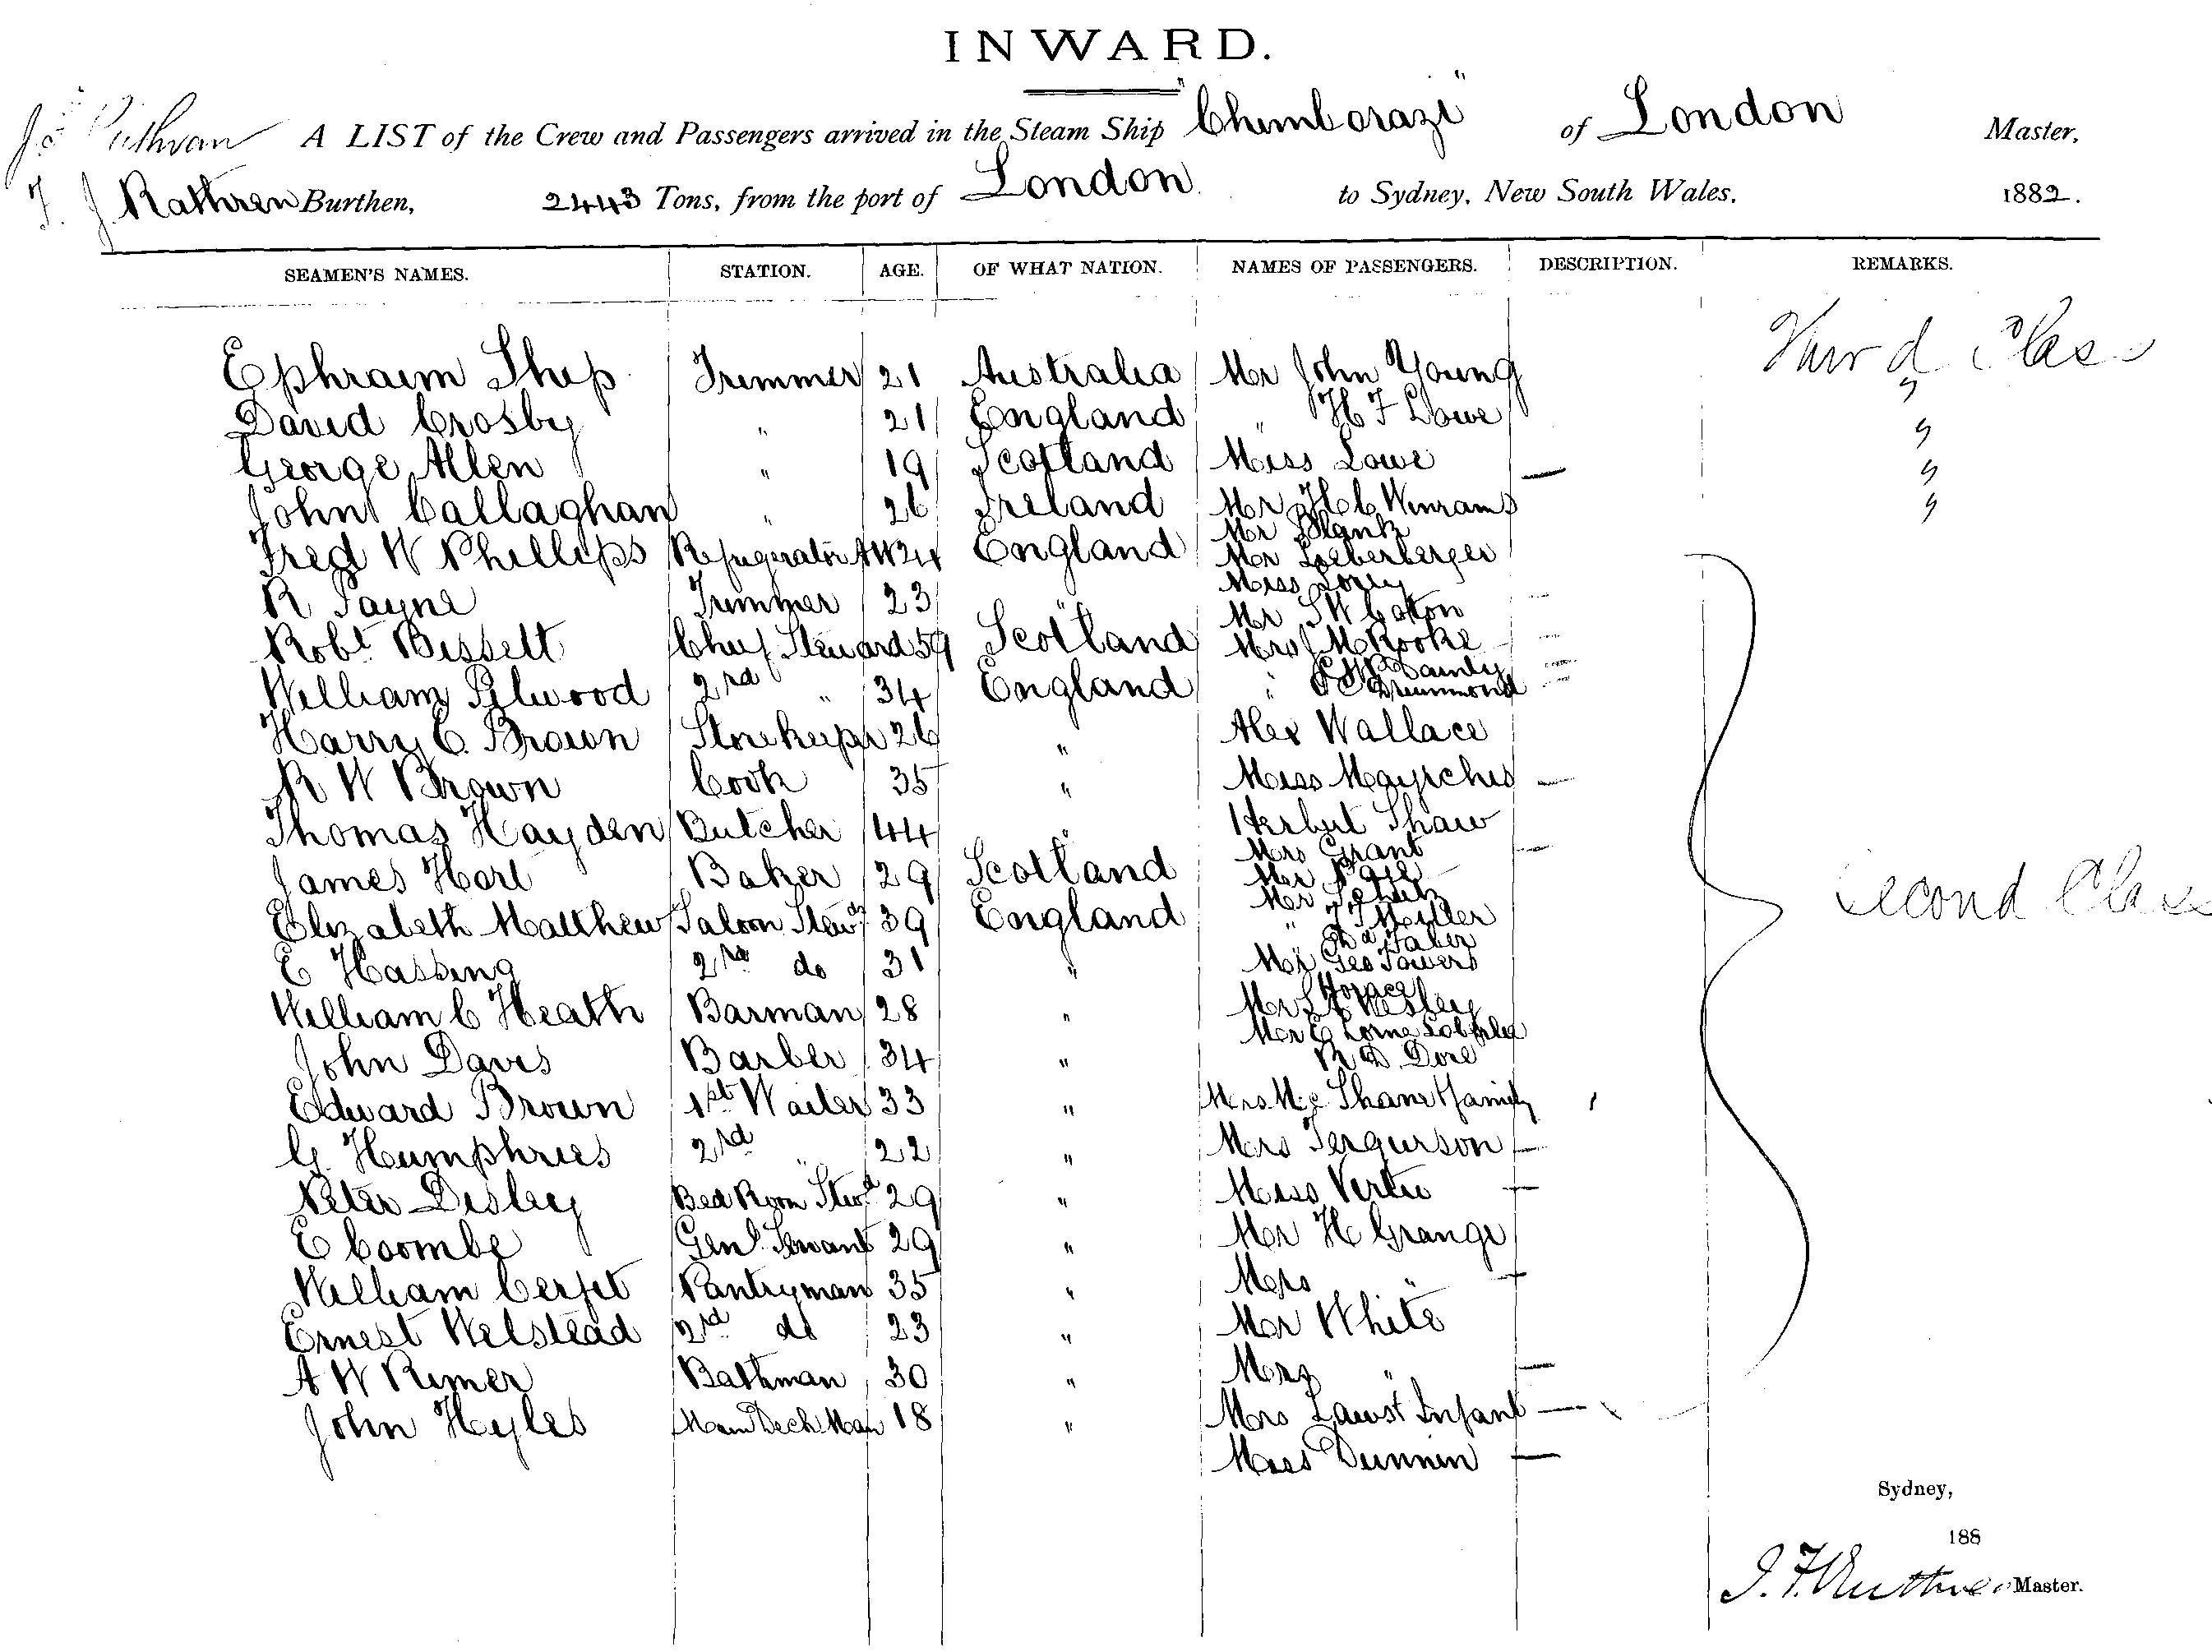 INWARD.
A LIST of the Crew and Passengers arrived in the Steam Ship "Chimborazo" of London Master,
Burthen, 2443 Tons, from the port of London to Sydney, New South Wales, 1882.
SEAMEN'S NAMES. STATION. AGE. OF WHAT NATION. NAMES OF PASSENGERS. DESCRIPTION. REMARKS.
Third Class
Ephraim Trimmer 21 Australia Mr John Young "
David Crosby " 21 England " H F Lowe "
George Allen " 19 Scotland Miss Lowe — "
John Callaghan " 26 Ireland Mr "
Mr
Fred W Phillips Refrigerator 24 England Mr
Miss
R Payne Trimmer 23 "
Mr
Robt Bissett Chief Steward 59 Scotland Mrs
William 2nd " 34 England " Drummond
Harry C. Brown Storekeepr 26 " Alex Wallace
R W Brown Cook 35 " Miss —
Thomas Hayden Butcher 44 " Herbert Shaw
Mrs Grant —
James Baker 29 Scotland Mr
Mr
Elizabeth Matthew Saloon Stewds 39 England " Miller
E 2nd do 31 " Mr Geo Towers
Horace
William C Heath Barman 28 " Mr Wesley
Mr
John Davis Barber 34 " R D Dore
Edward Brown 1st Waiter 33 " Mrs family
G Humphries 2nd " 22 " Mrs Fergurson —
Peter Disley Bed Room Stewd 29 " Miss Vertue —
E Coombe Genl Servant 29 " Mr H Grange
William Pantryman 35 " Mrs " —
Ernest Welstead 2nd do 23 " Mr White
A W Rimer Bathman 30 " Mrs " —
John Hyles Main Deck Man 18 " Mrs Infant —
Miss —
Second Class
Sydney,
188
Master.